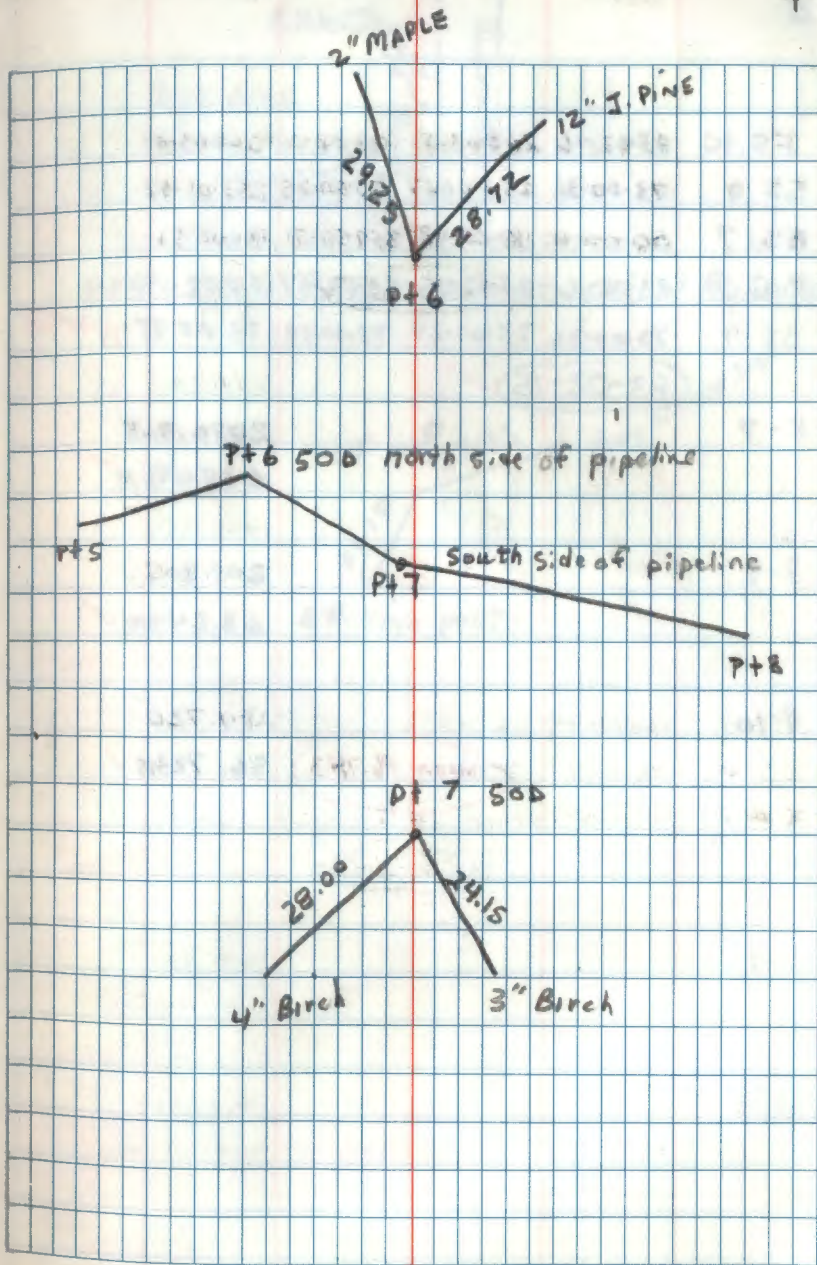 2" MAPLE
12" J. PINE
29.25
28.72
Pt 6
Pt 6 50D north side of pipeline
Pt 5
Pt 7
South side of pipeline
Pt 8
Pt 7 50D
28.00
24.15
4" Birch
3" Birch